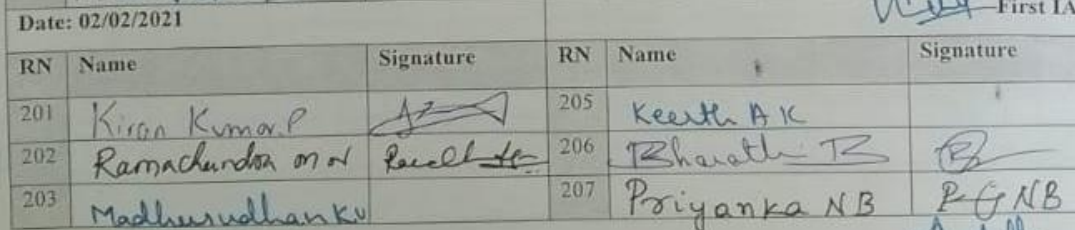 First IA
Date: 02/02/2021
RN Name Signature RN Name Signature
201 Kiran Kumar.P 205 Keerth A K
202 Ramachandra m N 206 Bharath B B
203 Madhusudhan KV 207 Priyanka NB P G NB